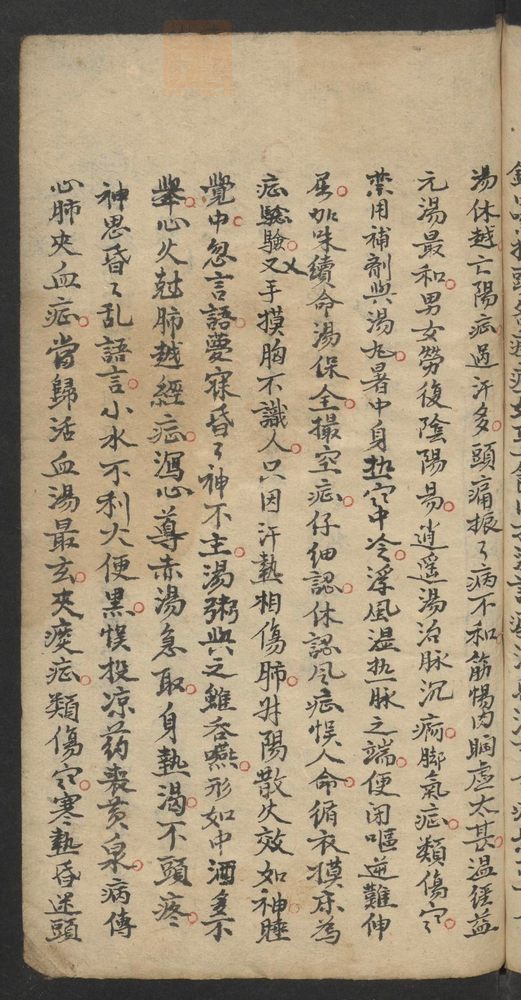 湯休越亡陽症過汗多頭痛振々病不和筋惕肉瞤虛太甚温經益
元湯最和男女勞復陰陽易逍遥湯治脉沉痾脚氣症類傷寒
禁用補劑與湯丸暑中身热空中冷浮風温热脉之端便闭嘔逆難伸
屈加味續命湯保全撮空症仔細認休認風症悮人命循衣摸床為
症驗驗又手摸胸不識人只因汗熱相傷肺升陽散火效如神睡
覺中忽言語夢寐昏々神不主湯粥與之雖吞嚥形如中酒多不
舉心火尅肺越經症瀉心導赤湯急取身熱渴不頭疼
神思昏々乱語言小水不利大便黑悮投凉药喪黄泉病傳
心肺夾血症當歸活血湯最玄夾痰症類傷寒寒熱昏迷頭